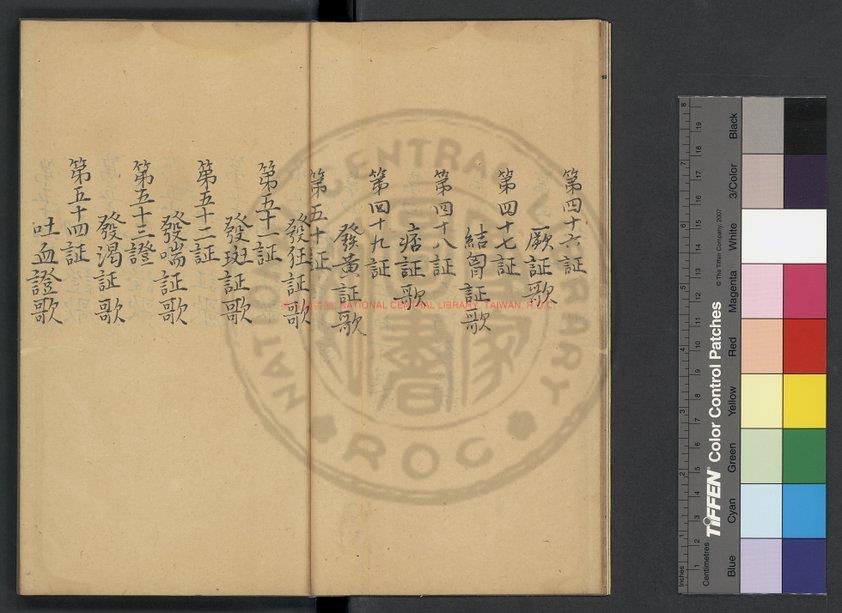 第四十六証
厥証歌
第四十七証
結胷証歌
第四十八証
痞証歌
第四十九証
發黃証歌
第五十証
發狂証歌
第五十一証
發斑証歌
第五十二証
發喘証歌
第五十三證
發渴証歌
第五十四証
吐血證歌
NATIONAL CENTRAL LIBRARY
ROC
NATIONAL CENTRAL LIBRARY, TAIWAN, R.O.C
TIFFEN® Color Control Patches
© The Tiffen Company, 2007
Inches
Centimetres
Blue
Cyan
Green
Yellow
Red
Magenta
White
3/Color
Black